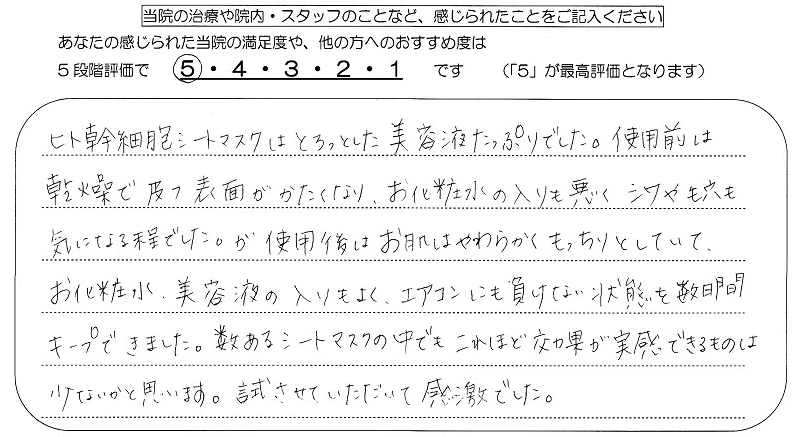 当院の治療や院内・スタッフのことなど、感じられたことをご記入ください
あなたの感じられた当院の満足度や、他の方へのおすすめ度は
5段階評価で ⑤・4・3・2・1 です (「5」が最高評価となります)
ヒト幹細胞シートマスクはとろっとした美容液たっぷりでした。使用前は
乾燥で皮フ表面がかたくなり、お化粧水の入りも悪く シワや毛穴も
気になる程でした。が 使用後はお肌はやわらかくもっちりとしていて、
お化粧水、美容液の入りもよく、エアコンにも負けない状態を数日間
キープできました。数あるシートマスクの中でもこれほど効果が実感できるものは
少ないかと思います。試させていただいて感激でした。